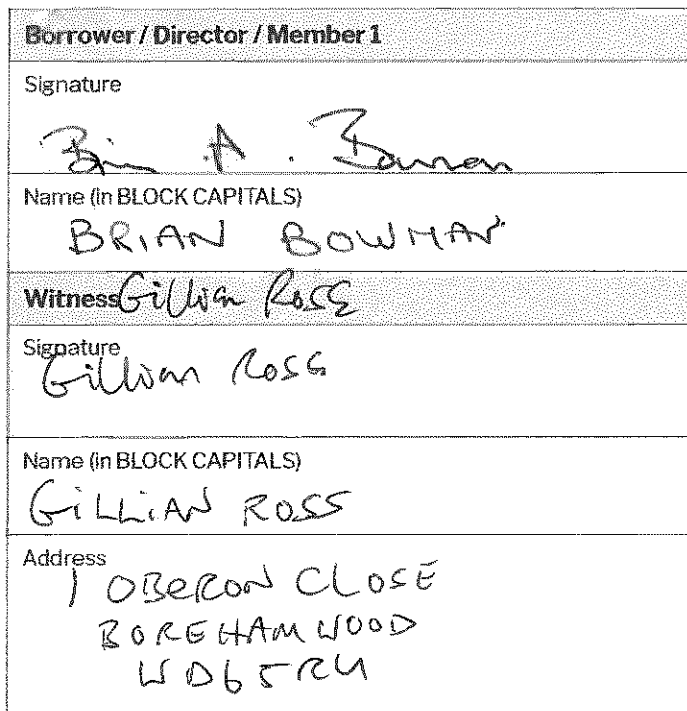 Borrower / Director / Member 1
Signature
Brian A. Bowman
Name (in BLOCK CAPITALS)
BRIAN BOWMAN
Witness Gillian Ross
Signature
Gillian Ross
Name (in BLOCK CAPITALS)
GILLIAN ROSS
Address
1 OBERON CLOSE
BOREHAMWOOD
WD6 5